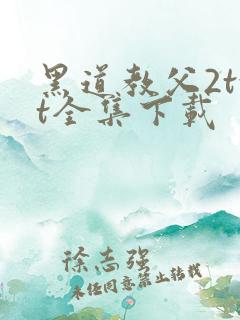 黑道教父2tx
t全集下载
徐志强
未经同意禁止转载